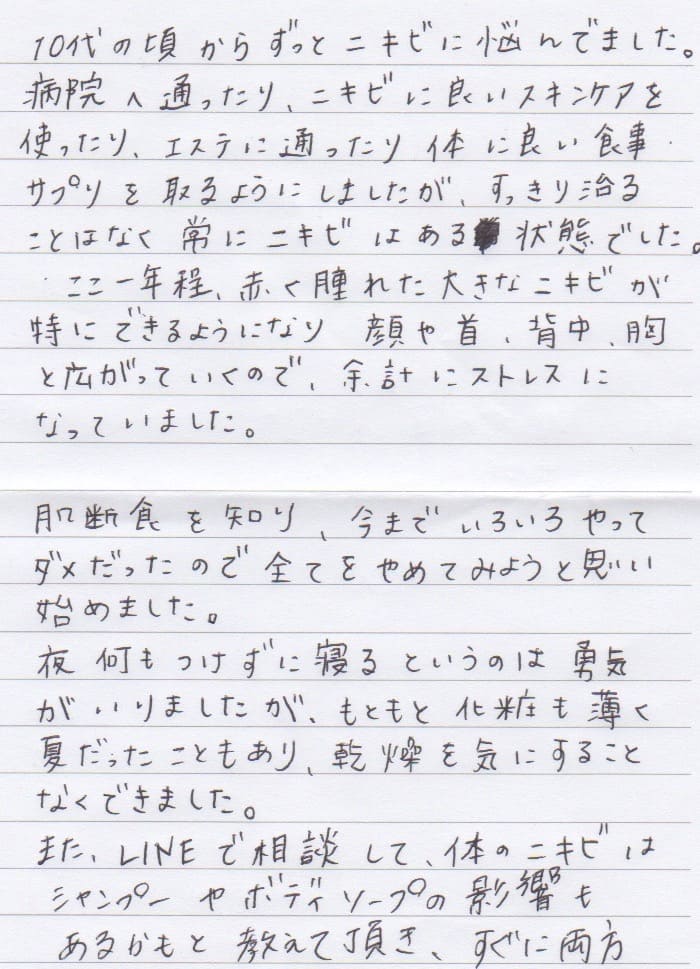 10代の頃からずっとニキビに悩んでました。
病院へ通ったり、ニキビに良いスキンケアを
使ったり、エステに通ったり体に良い食事
サプリを取るようにしましたが、すっきり治る
ことはなく常にニキビはある状態でした。
ここ一年程、赤く腫れた大きなニキビが
特にできるようになり 顔や首、背中、胸
と広がっていくので、余計にストレスに
なっていました。
肌断食を知り、今までいろいろやって
ダメだったので全てをやめてみようと思い
始めました。
夜何もつけずに寝るというのは勇気
がいりましたが、もともと化粧も薄く
夏だったこともあり、乾燥を気にすること
なくできました。
また、LINEで相談して、体のニキビは
シャンプーやボディソープの影響も
あるかもと教えて頂き、すぐに両方